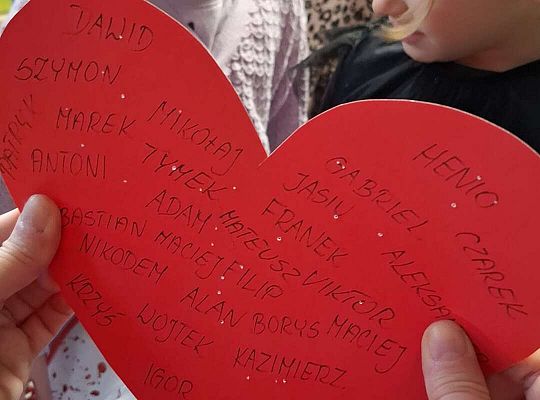 DAWID
SZYMON
PATRYK
MAREK
MIKOŁAJ
ANTONI
TYMEK
ADAM
BASTIAN
MACIEJ
MATEUSZ
NIKODEM
FILIP
KRZYŚ
WOJTEK
ALAN
BORYS
KAZIMIERZ.
IGOR
GABRIEL
JASIU
FRANEK
VIKTOR
MACIEJ
HENIO
CZAREK